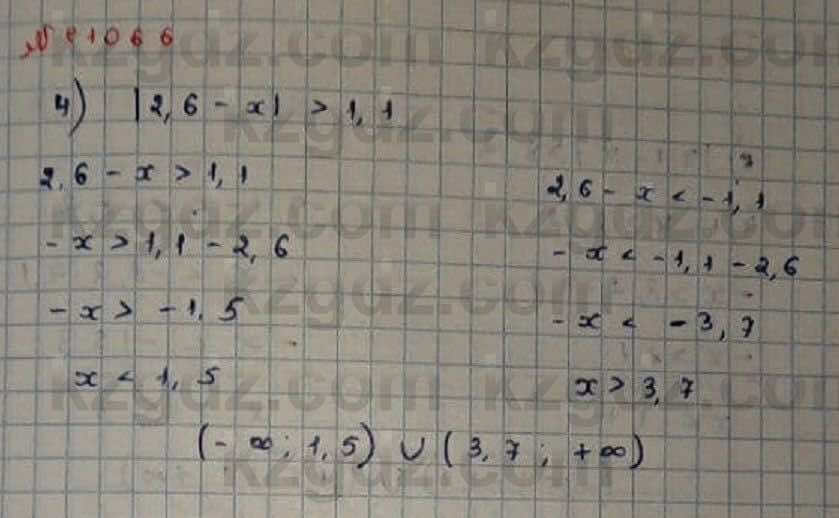 № 1066
4) |2,6 - x| > 1,1
2,6 - x > 1,1
- x > 1,1 - 2,6
- x > - 1,5
x < 1,5
2,6 - x < - 1,1
- x < - 1,1 - 2,6
- x < - 3,7
x > 3,7
(- ∞; 1,5) ∪ (3,7; +∞)
kzgdz.com kzgdz.com
kzgdz.com
kzgdz.com kzgdz.com
kzgdz.com
kzgdz.com kzgdz.com
kzgdz.com